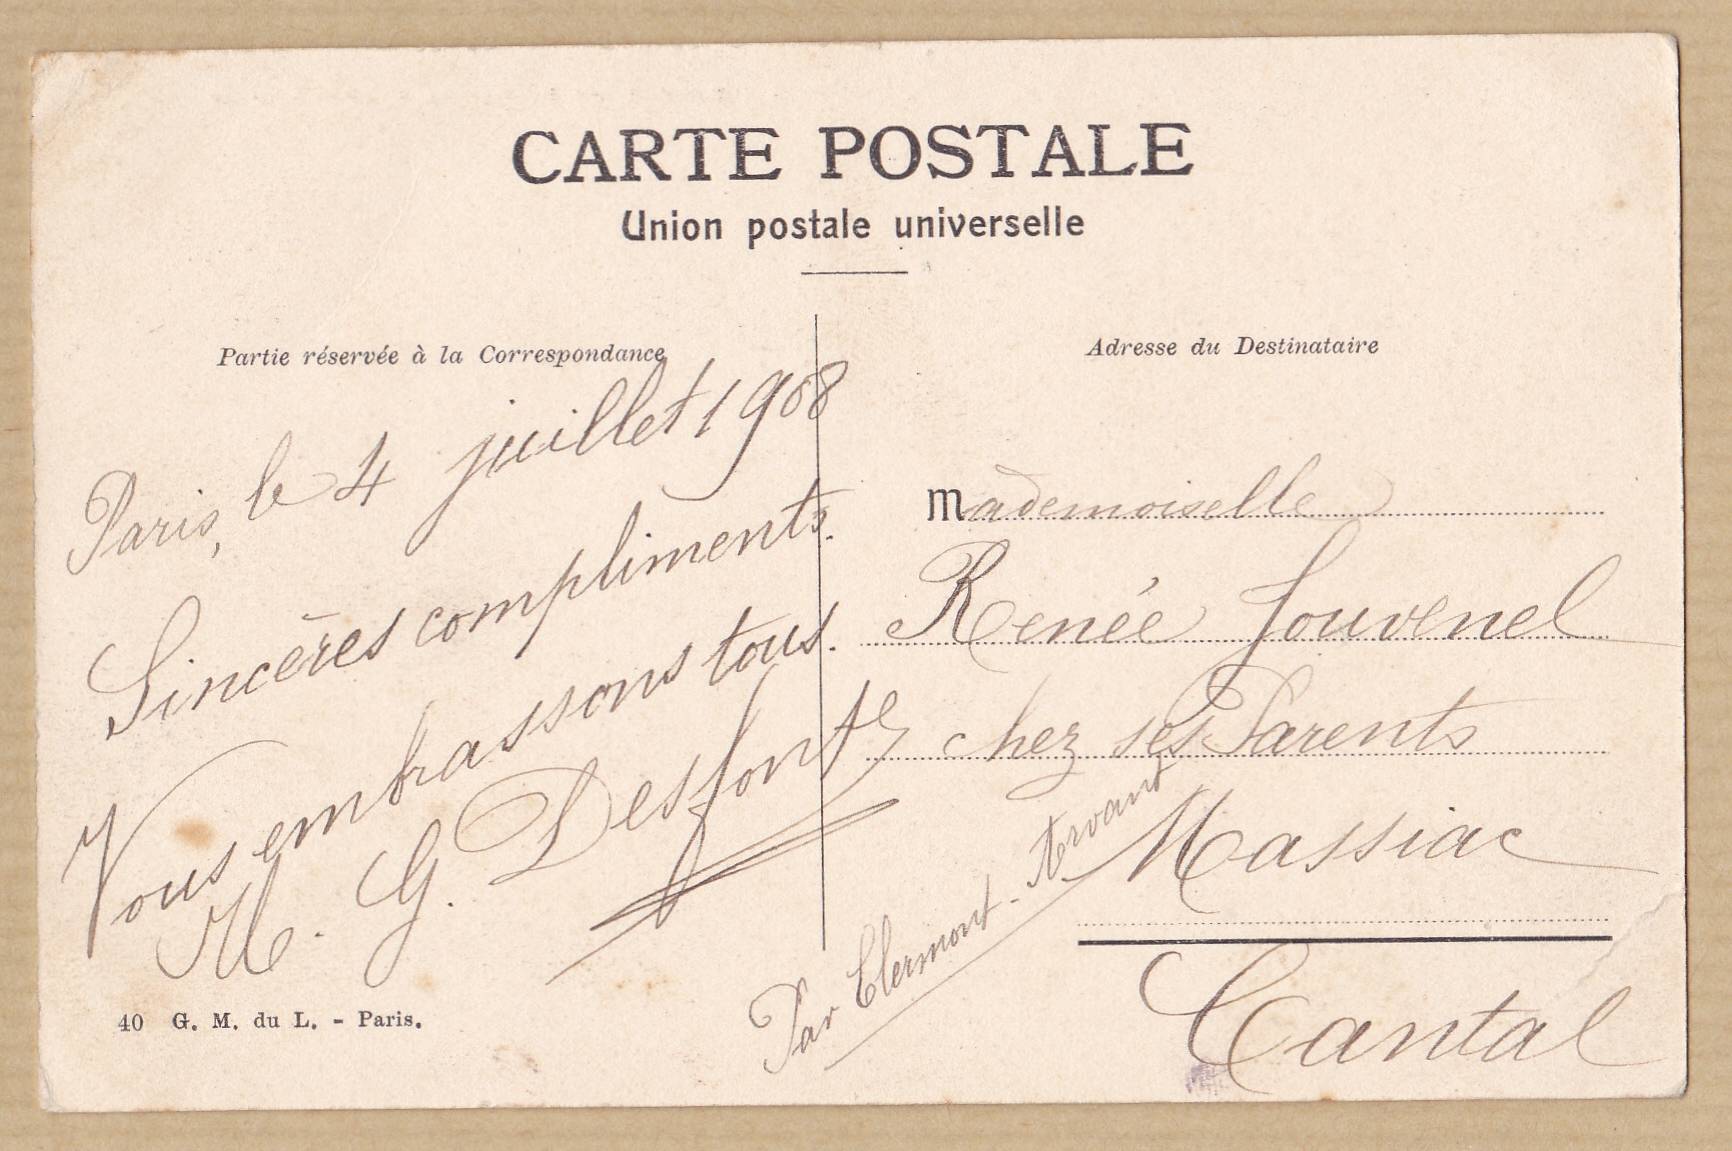 CARTE POSTALE
Union postale universelle
Partie réservée à la Correspondance
Paris, le 4 juillet 1908
Sincères compliments.
Vous embrassons tous.
M. G. Desfontz
40 G. M. du L. - Paris.
Adresse du Destinataire
Mademoiselle
Renée Jouvenel
chez ses Parents
Massiac
Cantal
Par Clermont - Arvant